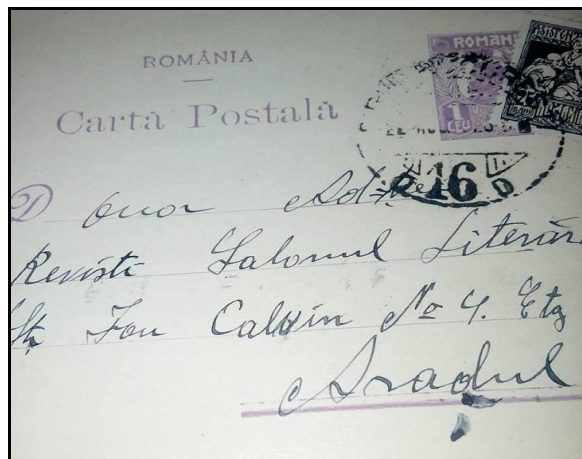 ROMÂNIA
Cartă Postală
ROMÂNI
1 LEU
ASISTENȚA
16
D
Onor Adm
Revistei Salonul Literar
Str Ion Calvin No 4. Etg
Aradul